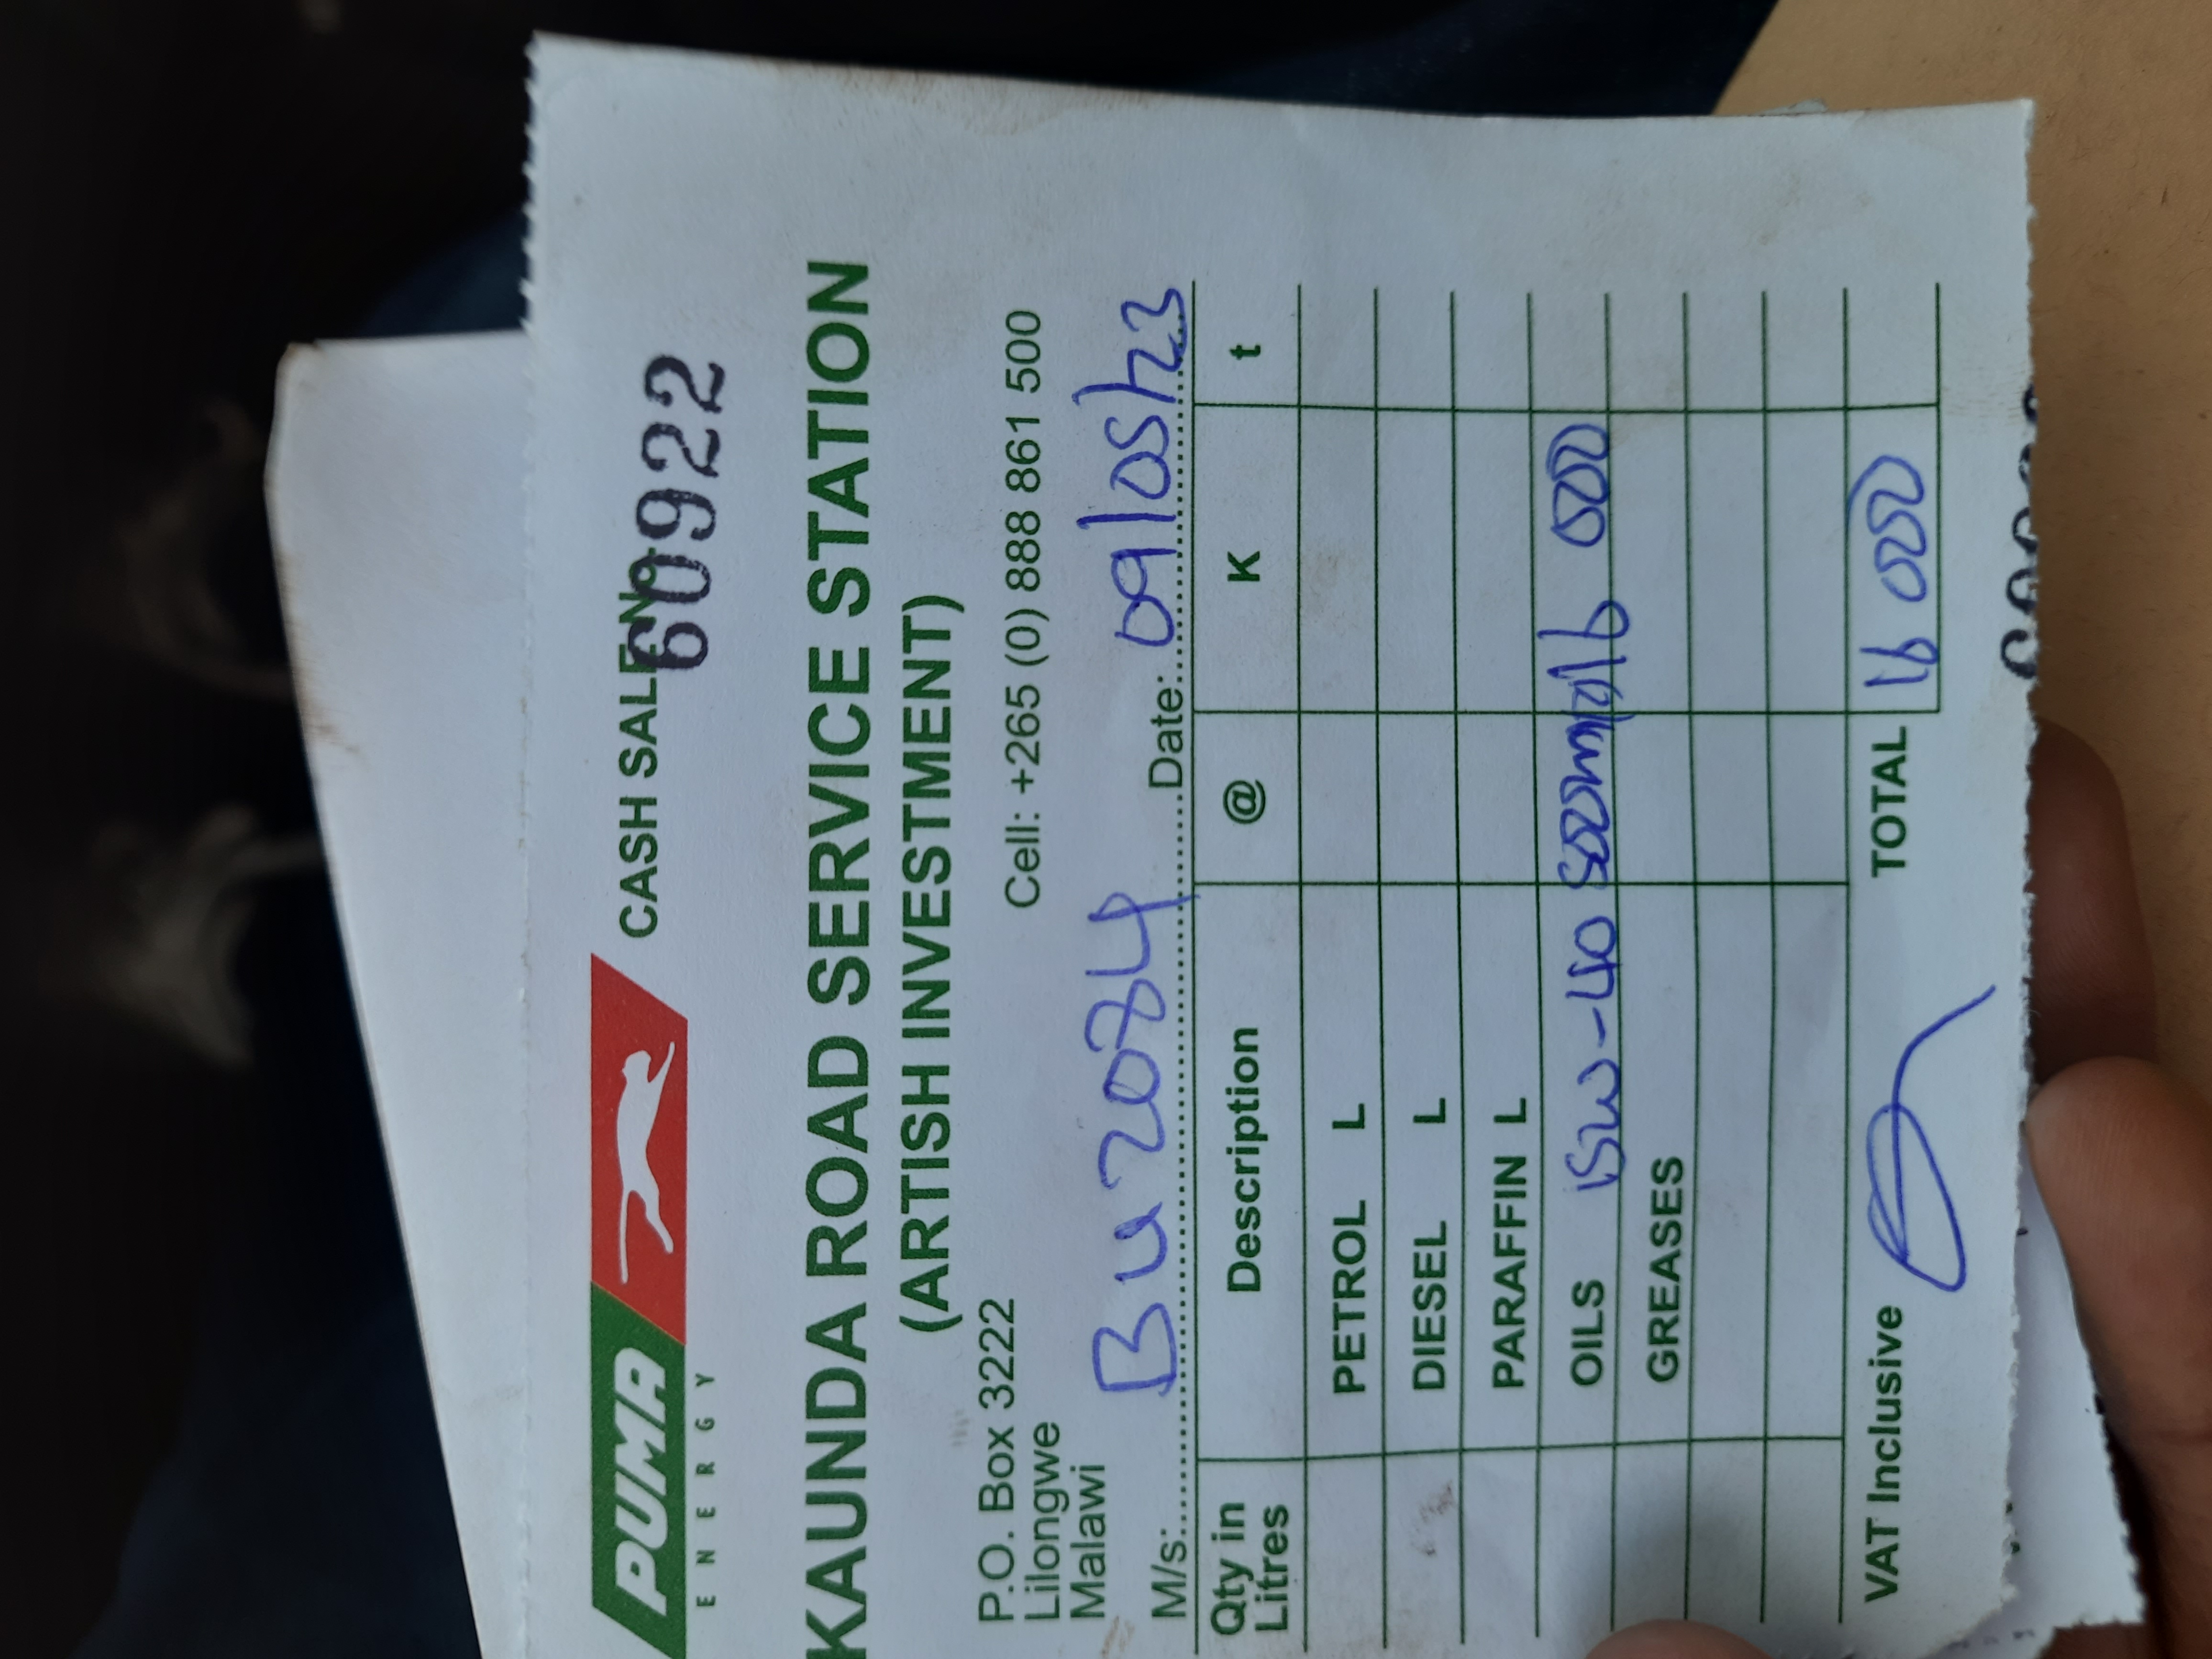 PUMA
ENERGY
CASH SALE No. 60922
KAUNDA ROAD SERVICE STATION
(ARTISH INVESTMENT)
P.O. Box 3222
Lilongwe
Malawi
Cell: +265 (0) 888 861 500
M/s: BU 2084 Date: 09/05/23
Qty in Litres Description @ K t
PETROL L
DIESEL L
PARAFFIN L
OILS 15W-40 500ml 16 000
GREASES
VAT Inclusive TOTAL 16 000